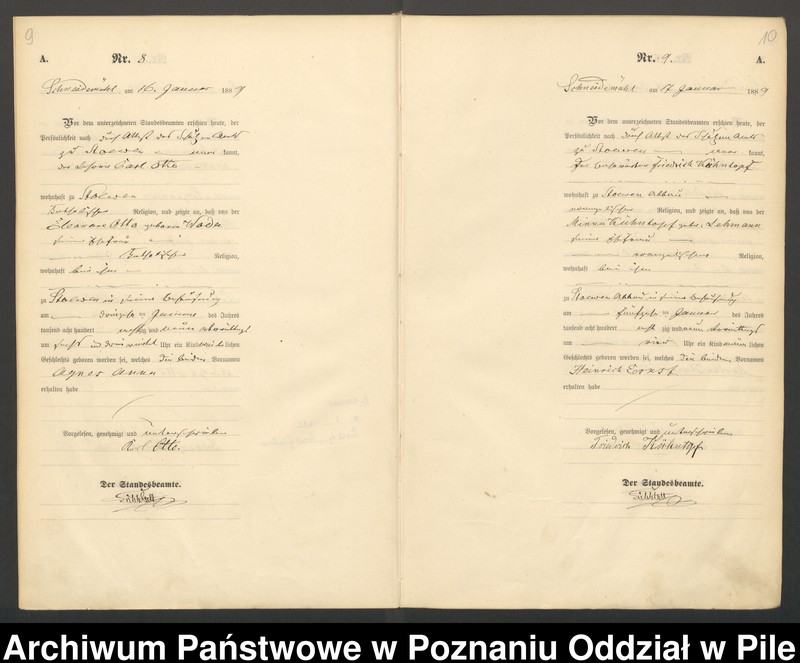 9
A.
Nr. 8.
Schneidemühl am 16. Januar 1889
Vor dem unterzeichneten Standesbeamten erschien heute, der
Persönlichkeit nach durch Attest des
zu Stoewen kannt,
der Carl Otto
wohnhaft zu Stoewen
katholischer Religion, und zeigte an, daß von der
Eleonore Otto geborene
seiner Ehefrau
katholischer Religion,
wohnhaft bei ihm
zu Stoewen in seiner Behausung
am Januar des Jahres
tausend acht hundert achtzig und neun Vormittags
um sechs Uhr ein Kind weiblichen
Geschlechts geboren worden sei, welches die beiden Vornamen
Agnes Anna
erhalten habe
Vorgelesen, genehmigt und unterschrieben
Karl Otto.
Der Standesbeamte.
10
Nr. 9.
A.
Schneidemühl am 17 Januar 1889
Vor dem unterzeichneten Standesbeamten erschien heute, der
Persönlichkeit nach durch Attest des
zu Stoewen kannt,
der Friedrich Kühntopf
wohnhaft zu Stoewen Abbau
evangelischer Religion, und zeigte an, daß von der
Minna Kühntopf geb. Lehmann
seiner Ehefrau
evangelischer Religion,
wohnhaft bei ihm
zu Stoewen Abbau in seiner Behausung
am fünfzehn Januar des Jahres
tausend acht hundert achtzig und neun
um vier Uhr ein Kind männlichen
Geschlechts geboren worden sei, welches die beiden Vornamen
Heinrich Ernst
erhalten habe
Vorgelesen, genehmigt und unterschrieben
Friedrich Kühntopf
Der Standesbeamte.
Archiwum Państwowe w Poznaniu Oddział w Pile